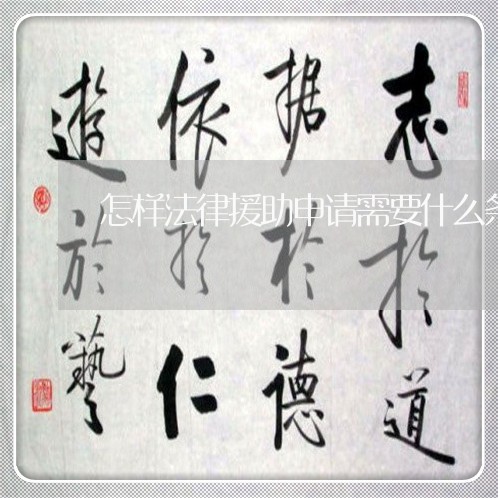 志於道
据於德
依於仁
遊於藝
怎样法律援助申请需要什么